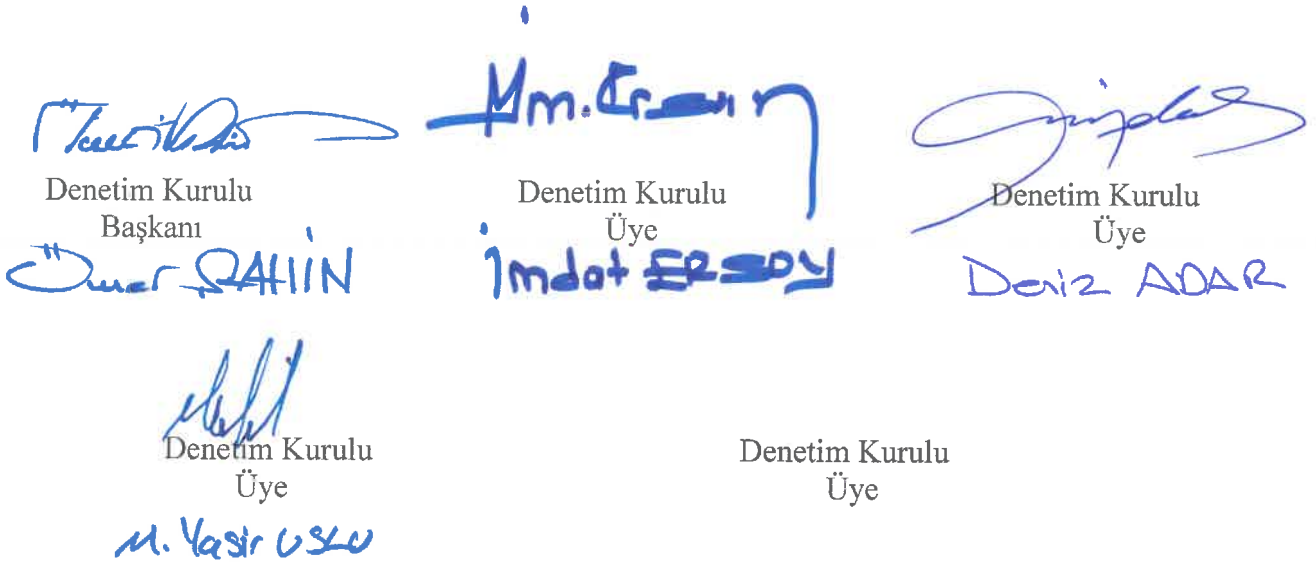 Denetim Kurulu
Başkanı
Ömer ŞAHİN
Denetim Kurulu
Üye
İmdat ERSOY
Denetim Kurulu
Üye
Deniz ADAR
Denetim Kurulu
Üye
M. Yasir USLU
Denetim Kurulu
Üye